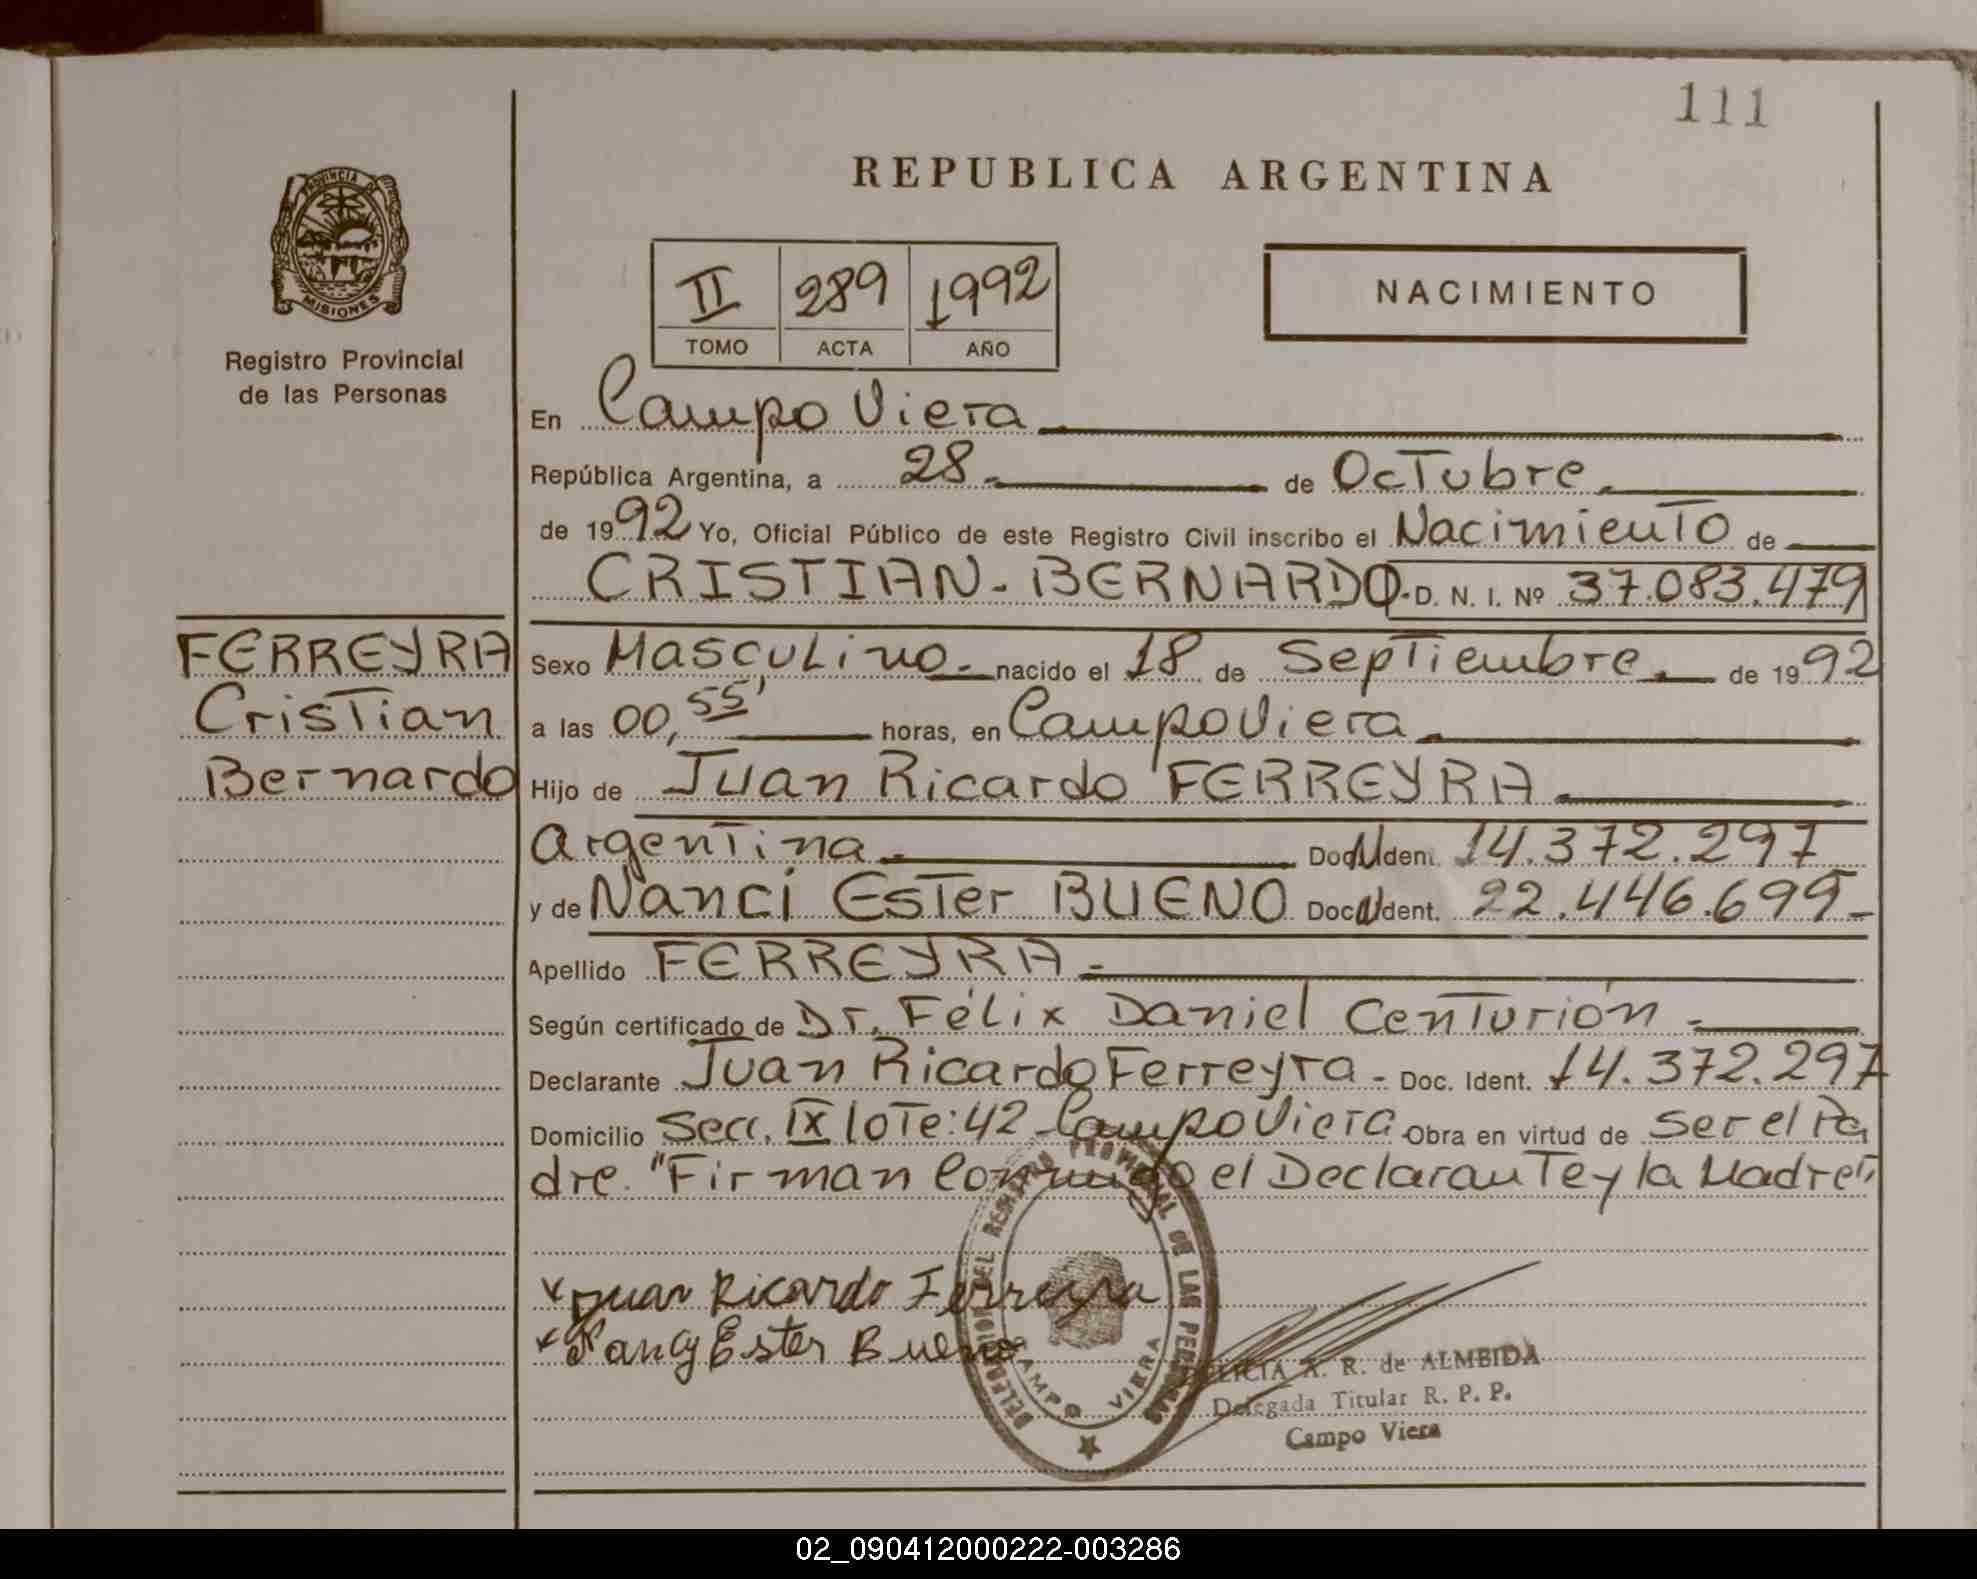 111
REPUBLICA ARGENTINA
PROVINCIA DE
MISIONES
Registro Provincial
de las Personas
II 289 1992
TOMO ACTA AÑO
NACIMIENTO
En Campo Viera
República Argentina, a 28 de OcTubre
de 1992 Yo, Oficial Público de este Registro Civil inscribo el NacimienTo de
CRISTIAN - BERNARDO. D. N. I. Nº 37.083.479
FERREYRA
CrisTian
Bernardo
Sexo MascuLino - nacido el 18 de SepTiembre de 1992
a las 00,55' horas, en Campo Viera
Hijo de Juan Ricardo FERREYRA
ArgenTina Doc. Ident. 14.372.297
y de Nanci EsTer BUENO Doc. Ident. 22.446.699-
Apellido FERREYRA -
Según certificado de Dr. Félix Daniel CenTurión -
Declarante Juan Ricardo Ferreyra - Doc. Ident. 14.372.297
Domicilio Secc. IX loTe: 42 - Campo Viera Obra en virtud de ser el Pa
dre. "Firman Conmigo el DeclaranTe y la Madre"
x Juan Ricardo Ferreyra
x Nancy Ester Bueno
DELEGACION DEL REGISTRO PROVINCIAL DE LAS PERSONAS
CAMPO VIERA
A. R. de ALMEIDA
Delegada Titular R. P. P.
Campo Viera
02_090412000222-003286